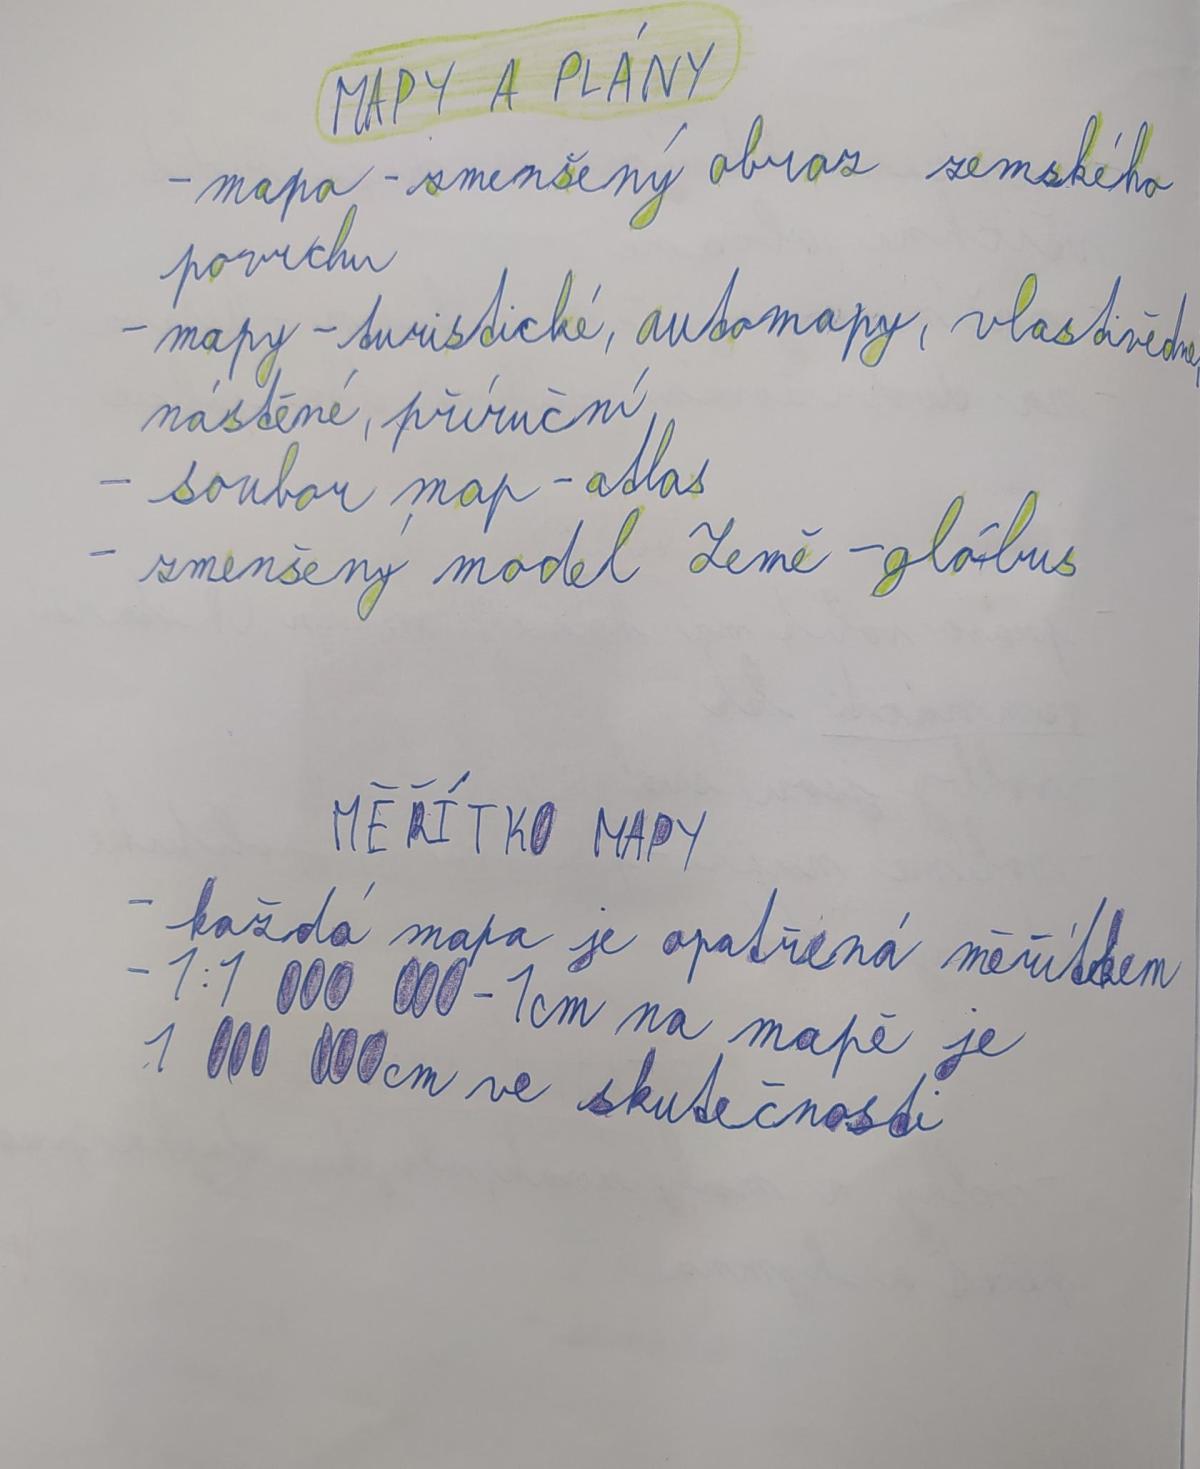 MAPY A PLÁNY
- mapa - zmenšený obraz zemského
povrchu
- mapy - turistické, automapy, vlastivědne,
nástěné, příruční
- soubor map - atlas
- zmenšený model Země - glóbus
MĚŘÍTKO MAPY
- každá mapa je opatřená měřítkem
- 1:1 000 000 - 1cm na mapě je
1 000 000cm ve skutečnosti